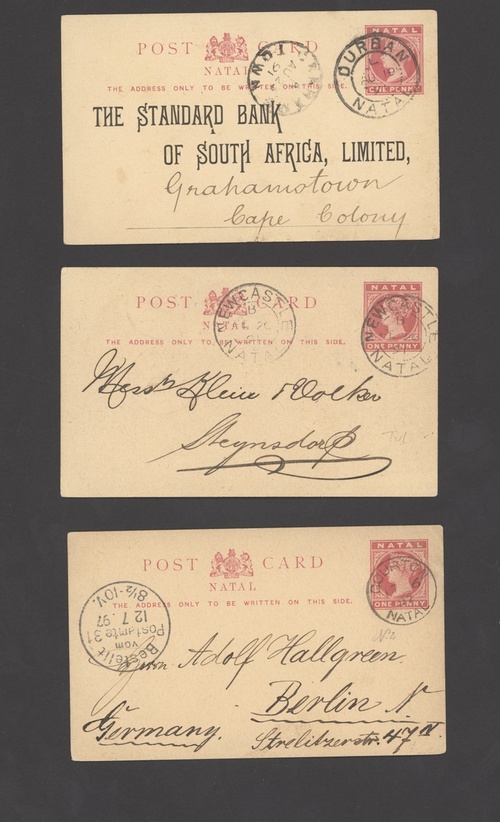 POST CARD
NATAL
NATAL
ONE PENNY
DURBAN
NATAL
THE ADDRESS ONLY TO BE WRITTEN ON THIS SIDE.
THE STANDARD BANK
OF SOUTH AFRICA, LIMITED,
Grahamstown
Cape Colony
POST CARD
NATAL
NATAL
ONE PENNY
NEWCASTLE
NATAL
NEWCASTLE
NATAL
THE ADDRESS ONLY TO BE WRITTEN ON THIS SIDE.
Messrs Klein & Volker
Steynsdorp
POST CARD
NATAL
NATAL
ONE PENNY
NATAL
THE ADDRESS ONLY TO BE WRITTEN ON THIS SIDE.
Bestellt
vom
Postamte 31
12 7. 97
8½-10V.
Herrn Adolf Hallgreen.
Berlin N
Germany.
Strelitzerstr. 47 II.